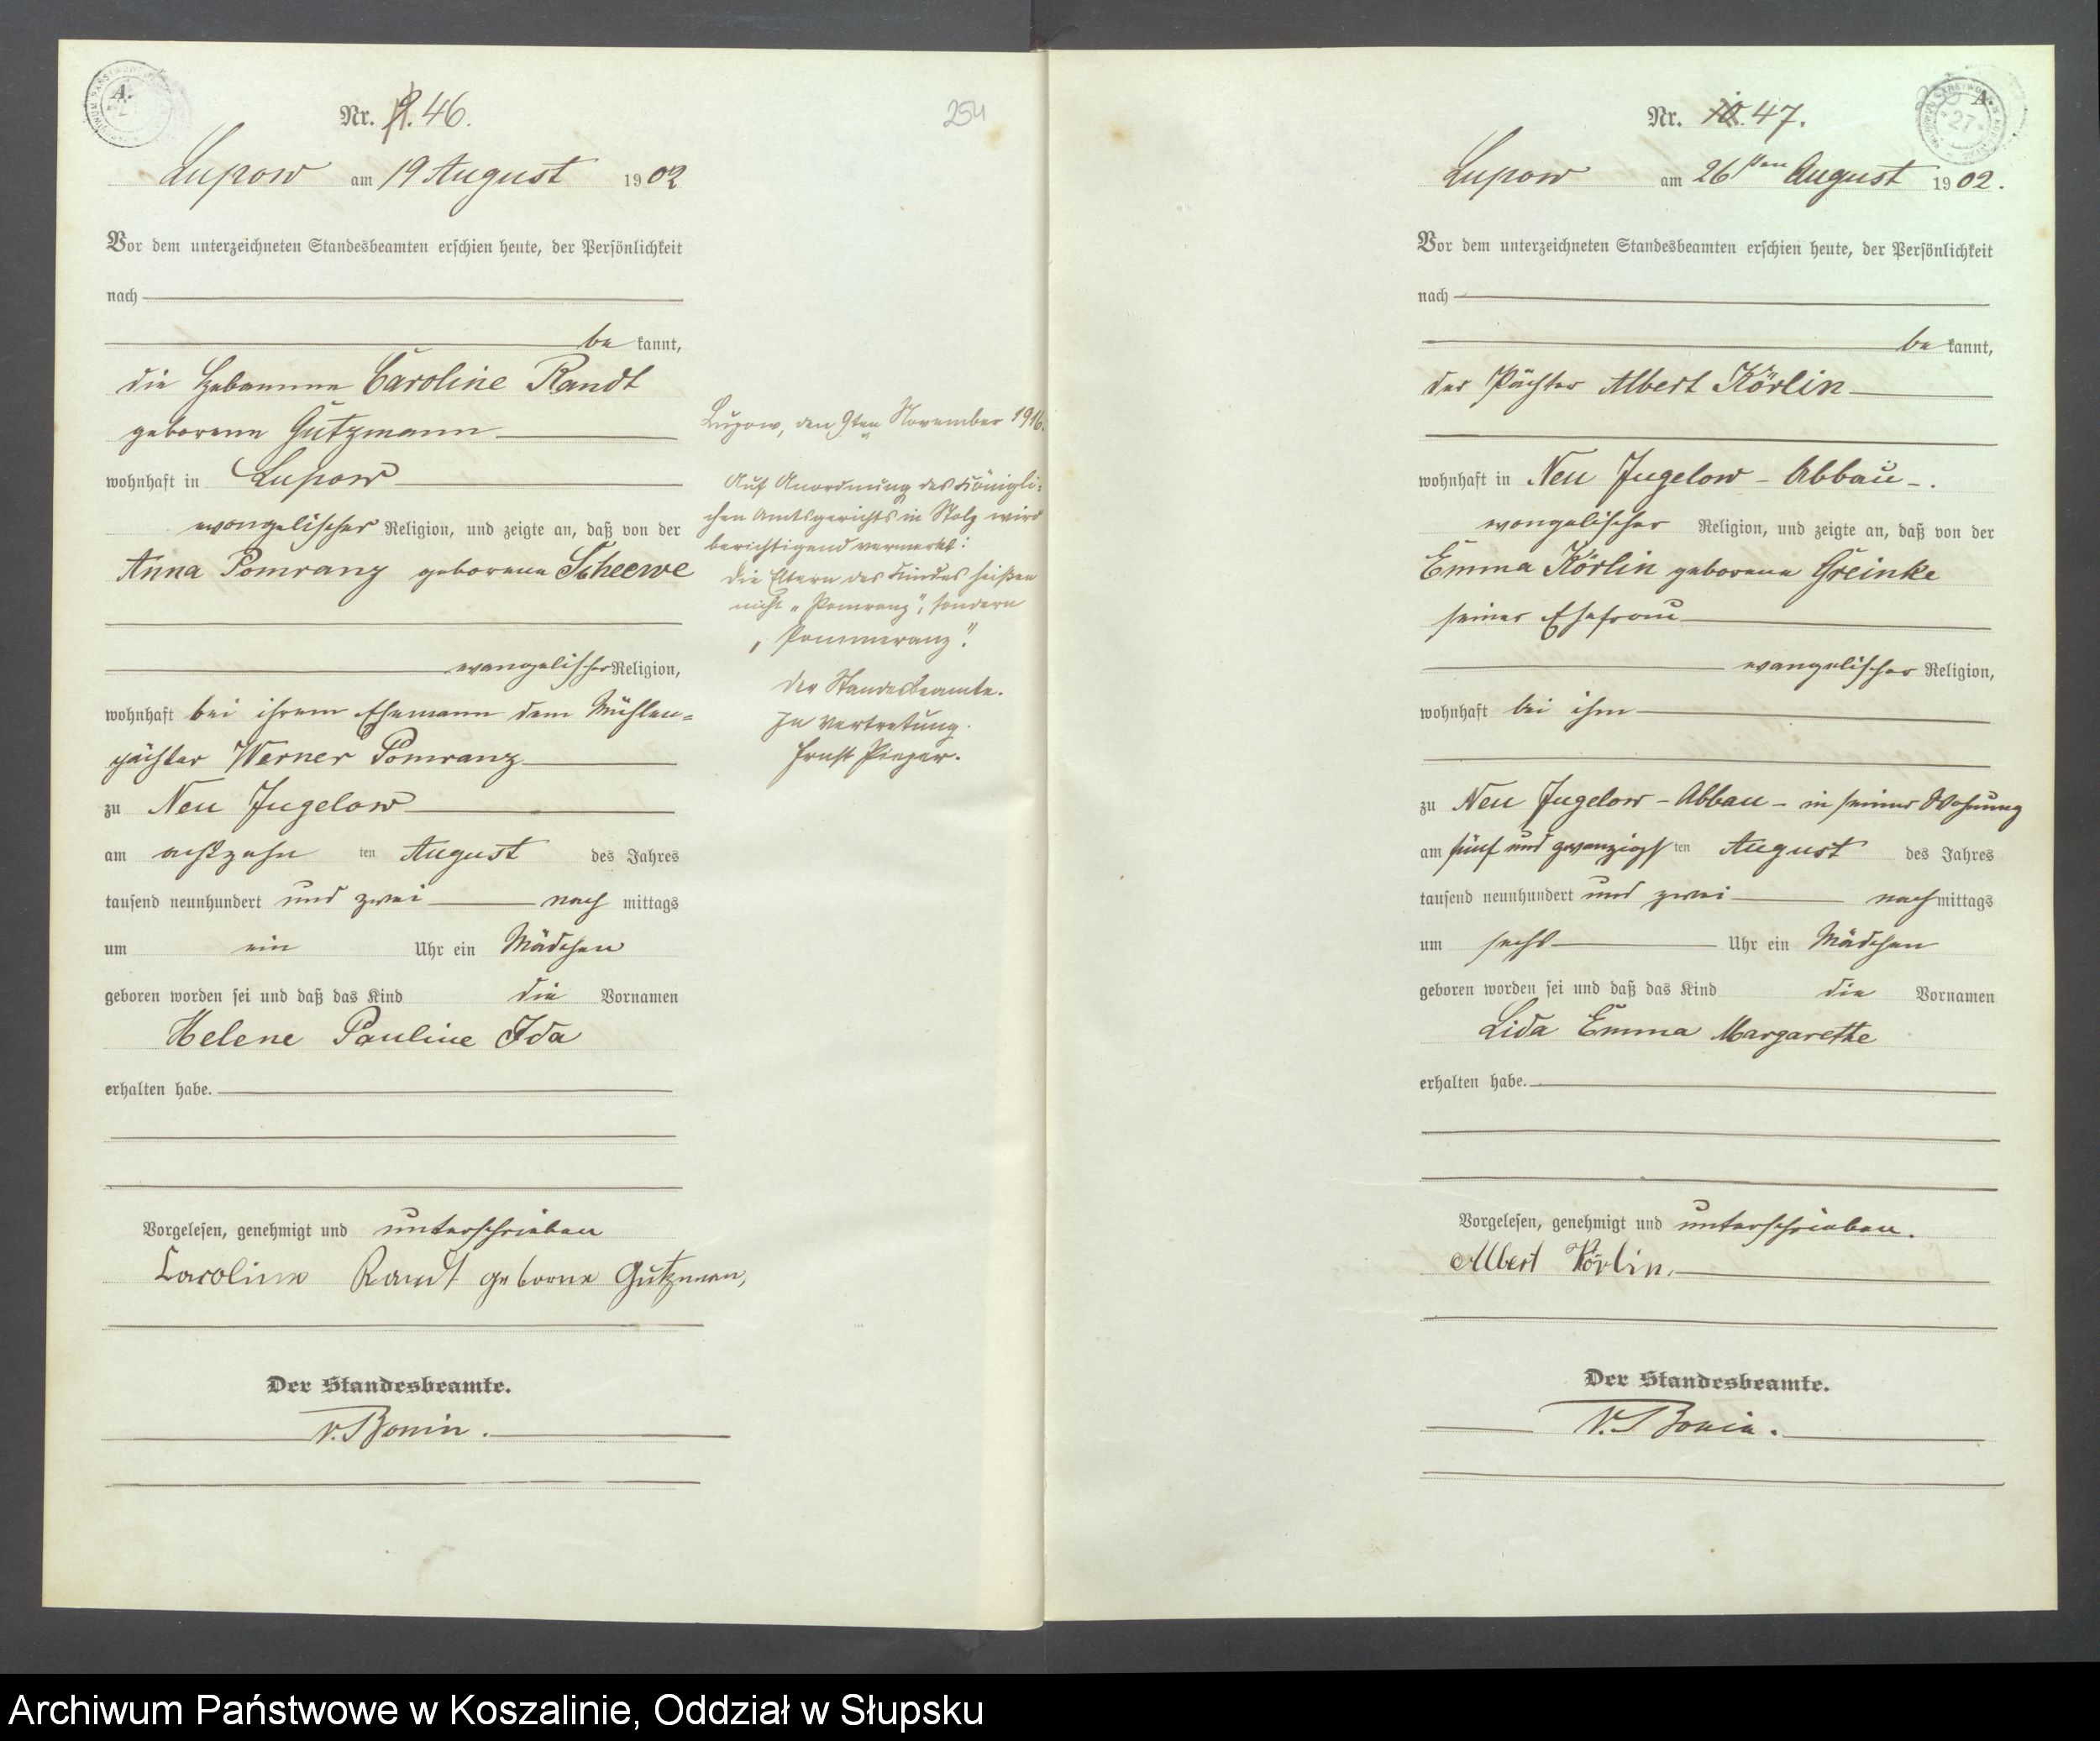 A.
Nr. 46.
254
Lupow am 19 August 1902
Vor dem unterzeichneten Standesbeamten erschien heute, der Persönlichkeit
nach
be kannt,
die Hebamme Caroline Randt
geborene Gutzmann
wohnhaft in Lupow
evangelischer Religion, und zeigte an, daß von der
Anna Pomranz geborene Scheewe
evangelischer Religion,
wohnhaft bei ihrem Ehemann dem Mühlen=
pächter Werner Pomranz
zu Neu Jugelow
am achtzehn ten August des Jahres
tausend neunhundert und zwei nach mittags
um ein Uhr ein Mädchen
geboren worden sei und daß das Kind die Vornamen
Helene Pauline Ida
erhalten habe.
Vorgelesen, genehmigt und unterschrieben
Caroline Randt geborne Gutzmann,
Der Standesbeamte.
v. Bonin.
Lupow, den 9ten November 1916.
Auf Anordnung des Königli=
chen Amtsgerichts in Stolp wird
berichtigend vermerkt:
die Eltern des Kindes heißen
nicht „Pomranz", sondern
„Pommeranz".
Der Standesbeamte.
In Vertretung.
Ernst Pieper.
A.
27
Nr. 10. 47.
Lupow am 26sten August 1902.
Vor dem unterzeichneten Standesbeamten erschien heute, der Persönlichkeit
nach
be kannt,
der Pächter Albert Körlin
wohnhaft in Neu Jugelow - Abbau -.
evangelischer Religion, und zeigte an, daß von der
Emma Körlin geborene Greinke
seiner Ehefrau
evangelischer Religion,
wohnhaft bei ihm
zu Neu Jugelow - Abbau - in seiner Wohnung
am fünf und zwanzigst ten August des Jahres
tausend neunhundert und zwei nach mittags
um sechs Uhr ein Mädchen
geboren worden sei und daß das Kind die Vornamen
Lida Emma Margarethe
erhalten habe.
Vorgelesen, genehmigt und unterschrieben.
Albert Körlin.
Der Standesbeamte.
v. Bonin.
Archiwum Państwowe w Koszalinie, Oddział w Słupsku